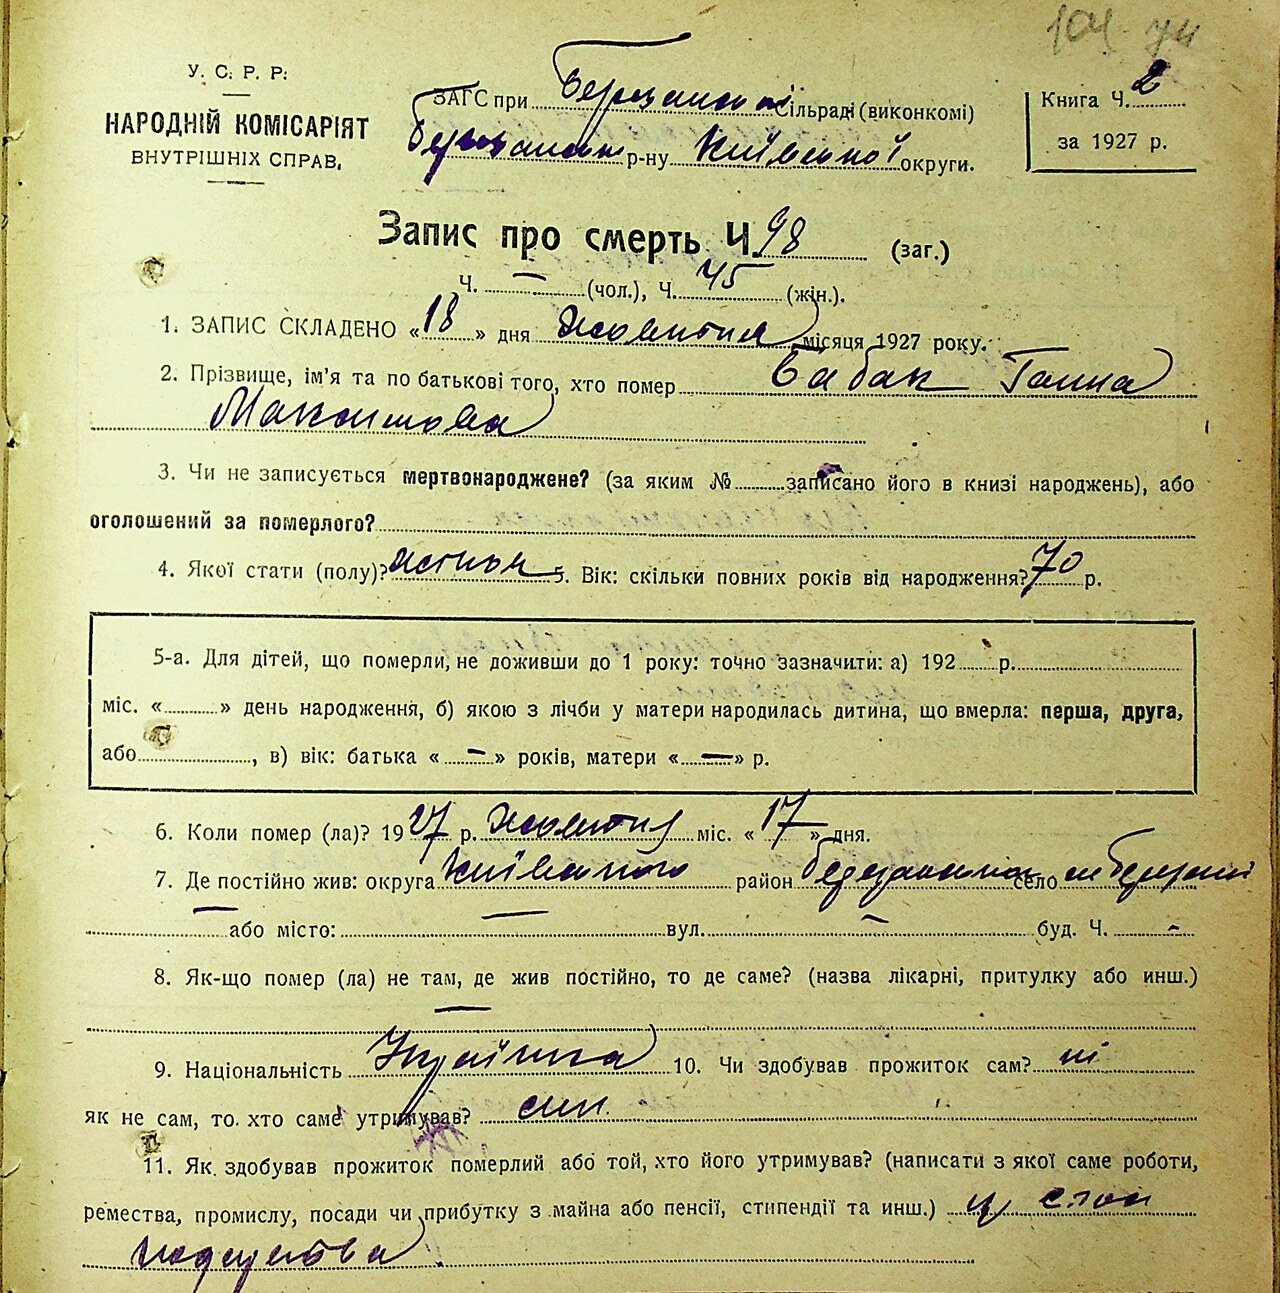 104
У. С. Р. Р.
НАРОДНІЙ КОМІСАРІЯТ
ВНУТРІШНІХ СПРАВ.
ЗАГС при Березанськ сільраді (виконкомі)
Березанськ р-ну Київської округи.
Книга Ч. 2
за 1927 р.
Запис про смерть Ч. 98 (заг.)
Ч. — (чол.), Ч. 45 (жін.).
1. ЗАПИС СКЛАДЕНО «18» дня Жовтня місяця 1927 року.
2. Прізвище, ім'я та по батькові того, хто помер Бабак Ганна
Максимовна
3. Чи не записується мертвонароджене? (за яким № записано його в книзі народжень), або
оголошений за померлого?
4. Якої стати (полу)? жіноч 5. Вік: скільки повних років від народження? 70 р.
5-а. Для дітей, що померли, не доживши до 1 року: точно зазначити: а) 192 р.
міс. « » день народження, б) якою з лічби у матери народилась дитина, що вмерла: перша, друга,
або , в) вік: батька «—» років, матери «—» р.
6. Коли помер (ла)? 1927 р. Жовтня міс. «17» дня.
7. Де постійно жив: округа Київського район Березанськ село м Березань
— або місто: — вул. — буд. Ч. -
8. Як-що помер (ла) не там, де жив постійно, то де саме? (назва лікарні, притулку або инш.)
—
9. Національність Українка 10. Чи здобував прожиток сам? ні
як не сам, то хто саме утримував? син
11. Як здобував прожиток померлий або той, хто його утримував? (написати з якої саме роботи,
ремества, промислу, посади чи прибутку з майна або пенсії, стипендії та инш.)